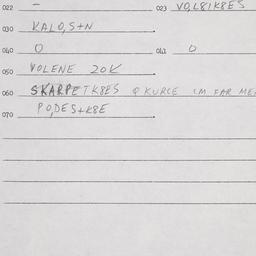 022 – 023 VO,L8IK8ES
030 KALO,S+N
040 O 041 O
050 VOLENE 20K
060 SKARPETK8ES Q KURCE IM FAR ME
070 PO,DES+K8E